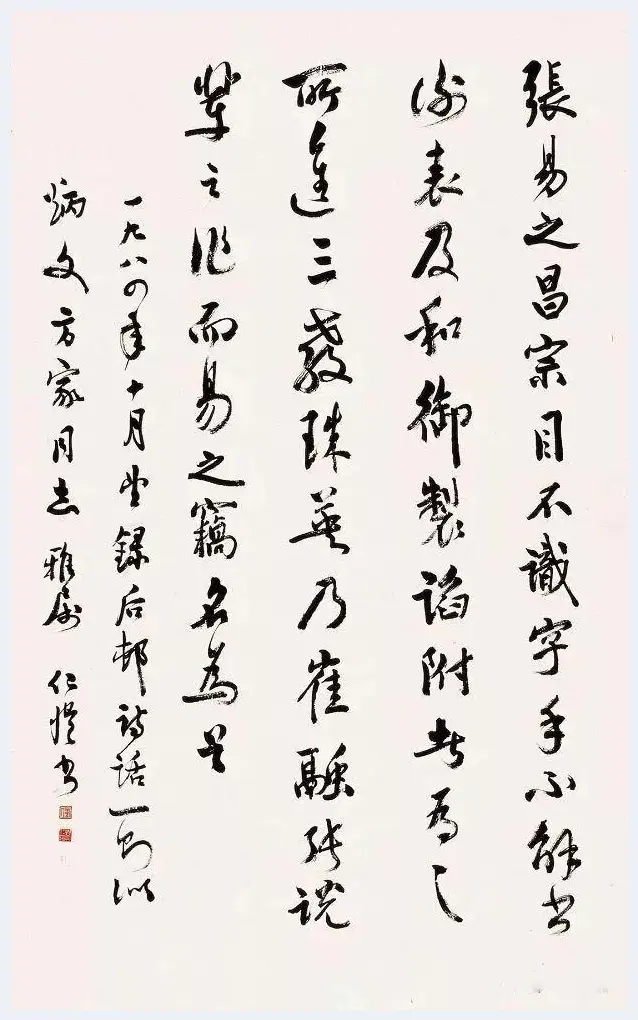 張易之昌宗目不識字手不解書
謝表及和御製諂附者為之
所進三教珠英乃崔融張說
輩之作而易之竊名為首
一九八四年十月錄后邨詩話一則似
炳文方家同志雅屬 仁愷書